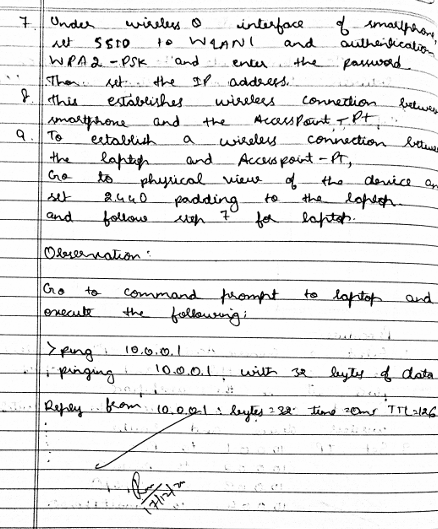 7. Under wireless 0 interface of smartphone,
set SSID to WLAN1 and authentication
WPA2-PSK and enter the password
Then set the IP address.
8. this establishes wireless connection between
smartphone and the AccessPoint-Pt.
9. To establish a wireless connection between
the laptop and Accesspoint-PT,
Go to physical view of the device an
set 2.440 padding to the laptop.
and follow step 7 for laptop.
Observation:
Go to command prompt to laptop and
execute the following:
> ping 10.0.0.1
pinging 10.0.0.1 with 32 bytes of data
Reply from 10.0.0.1: bytes=32 time=0ms TTL=126